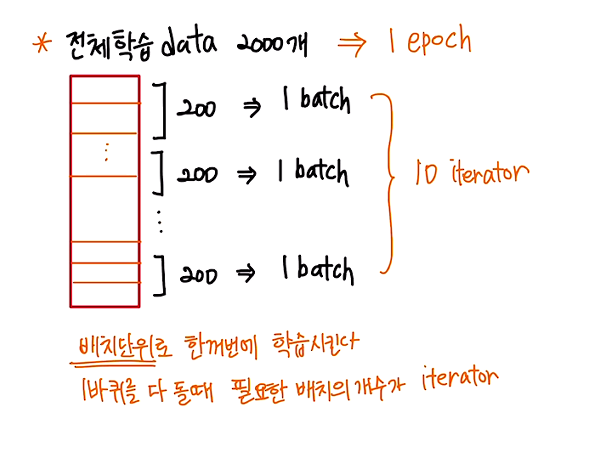 * 전체학습 data 2000개 ⇒ 1 epoch
200 ⇒ 1 batch
200 ⇒ 1 batch
10 iterator
200 ⇒ 1 batch
배치단위로 한꺼번에 학습시킨다
1바퀴를 다 돌때 필요한 배치의 개수가 iterator